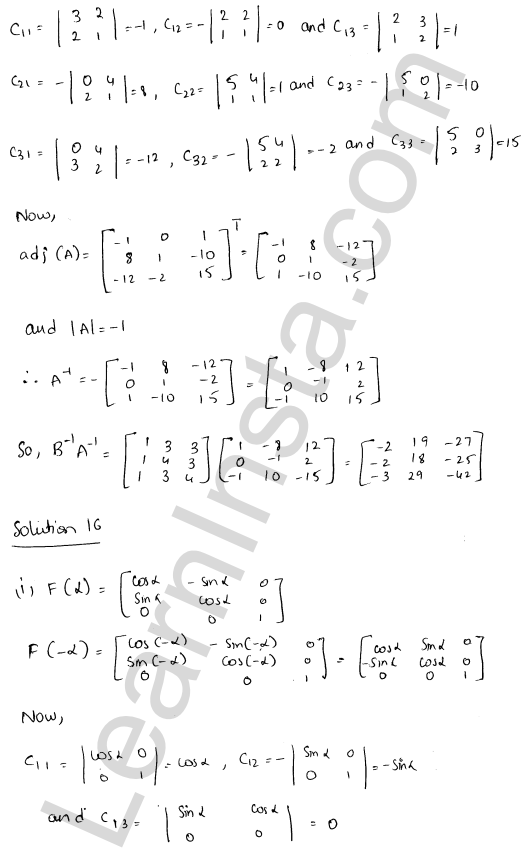 C11 = |3 2; 2 1| = -1, C12 = -|2 2; 1 1| = 0 and C13 = |2 3; 1 2| = 1
C21 = -|0 4; 2 1| = 8, C22 = |5 4; 1 1| = 1 and C23 = -|5 0; 1 2| = -10
C31 = |0 4; 3 2| = -12, C32 = -|5 4; 2 2| = -2 and C33 = |5 0; 2 3| = 15
Now,
adj (A) = [-1 0 1; 8 1 -10; -12 -2 15]^T = [-1 8 -12; 0 1 -2; 1 -10 15]
and |A| = -1
∴ A^-1 = -[-1 8 -12; 0 1 -2; 1 -10 15] = [1 -8 12; 0 -1 2; -1 10 15]
So, B^-1 A^-1 = [1 3 3; 1 4 3; 1 3 4] [1 -8 12; 0 -1 2; -1 10 -15] = [-2 19 -27; -2 18 -25; -3 29 -42]
Solution 16
(i) F(α) = [cosα -sinα 0; sinα cosα 0; 0 0 1]
F(-α) = [cos(-α) -sin(-α) 0; sin(-α) cos(-α) 0; 0 0 1] = [cosα sinα 0; -sinα cosα 0; 0 0 1]
Now,
C11 = |cosα 0; 0 1| = cosα, C12 = -|sinα 0; 0 1| = -sinα
and C13 = |sinα cosα; 0 0| = 0
LearnInsta.com